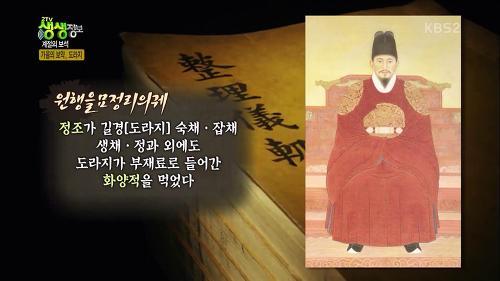 2TV
생생정보
계절의 보석
가을의 보약, 도라지
KBS2
整理儀軌
원행을묘정리의궤
정조가 길경[도라지] 숙채·잡채
생채·정과 외에도
도라지가 부재료로 들어간
화양적을 먹었다